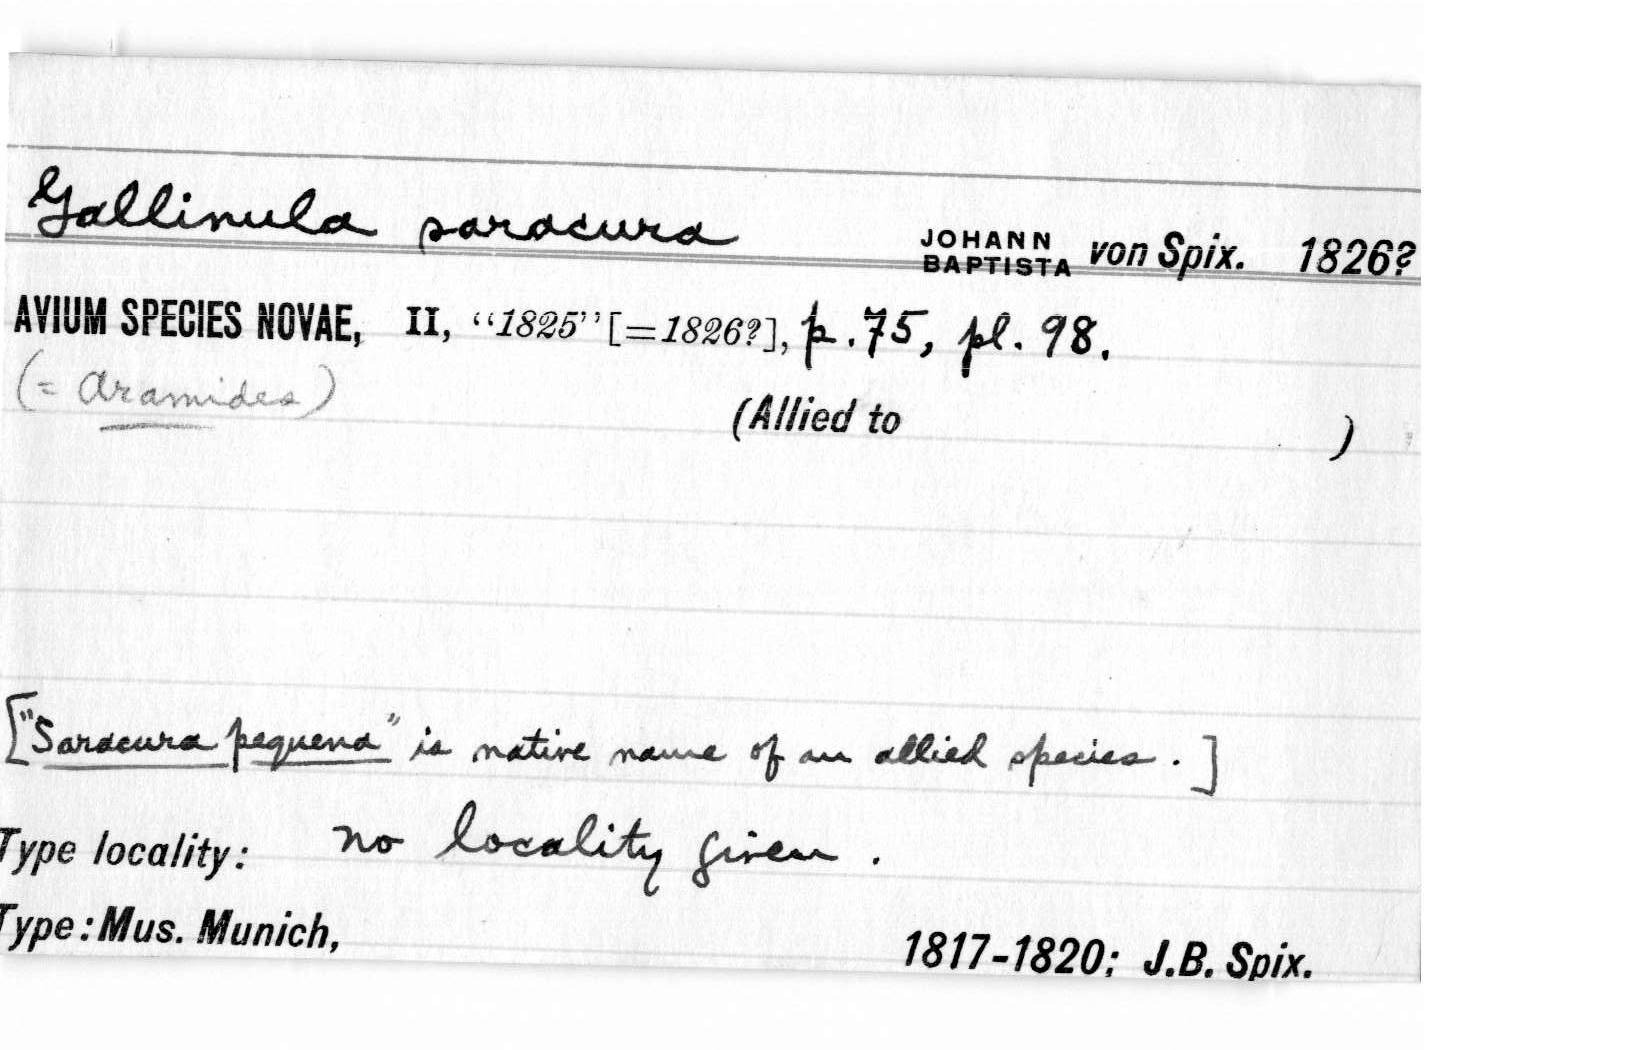 Gallinula saracura JOHANN BAPTISTA von Spix. 1826?
AVIUM SPECIES NOVAE, II, “1825” [=1826?], p. 75, pl. 98.
(= Aramides)
(Allied to )
["Saracura pequena" is native name of an allied species.]
Type locality: no locality given.
Type: Mus. Munich, 1817-1820; J.B. Spix.